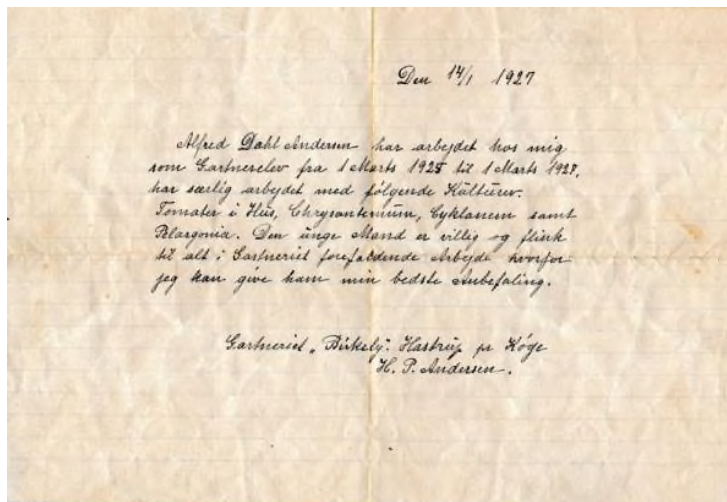 Den 14/1 1927
Alfred Dahl Andersen har arbejdet hos mig
som Gartnerelev fra 1 Marts 1925 til 1 Marts 1927,
har særlig arbejdet med følgende Kulturer.
Tomater i Hus, Chrysantemum, Cyklamem samt
Pelargonia. Den unge Mand er villig og flink
til alt i Gartneriet forefaldende Arbejde hvorfor
jeg kan give ham min bedste Anbefaling.
Gartneriet „Birkely". Hastrup pr Køge
H. P. Andersen.